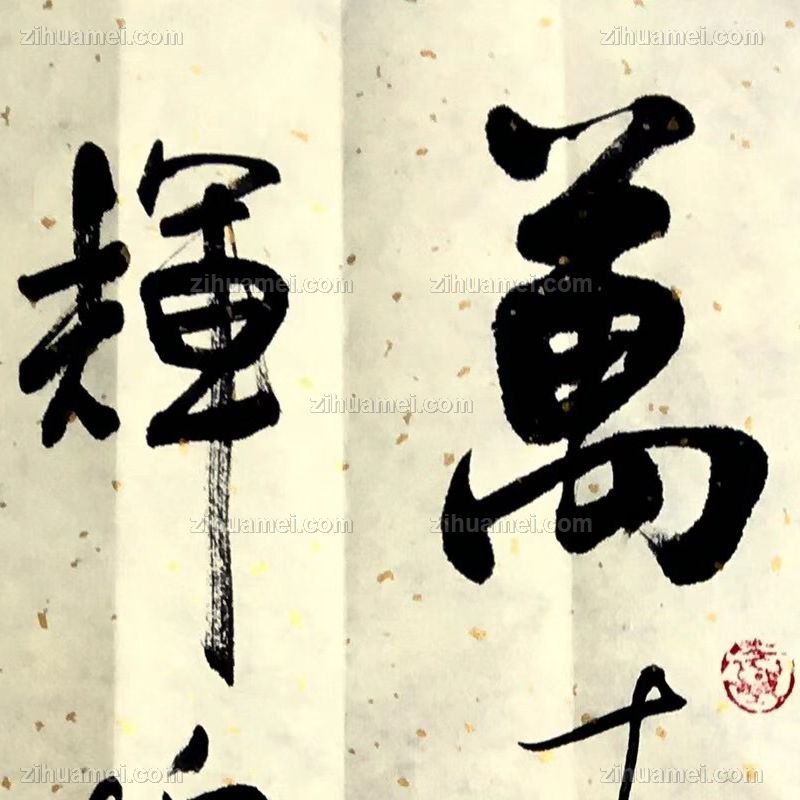 萬
輝
zihuamei.com
zihuamei.com
zihuamei.com
zihuamei.com
zihuamei.com
zihuamei.com
zihuamei.com
zihuamei.com
zihuamei.com
zihuamei.com
zihuamei.com